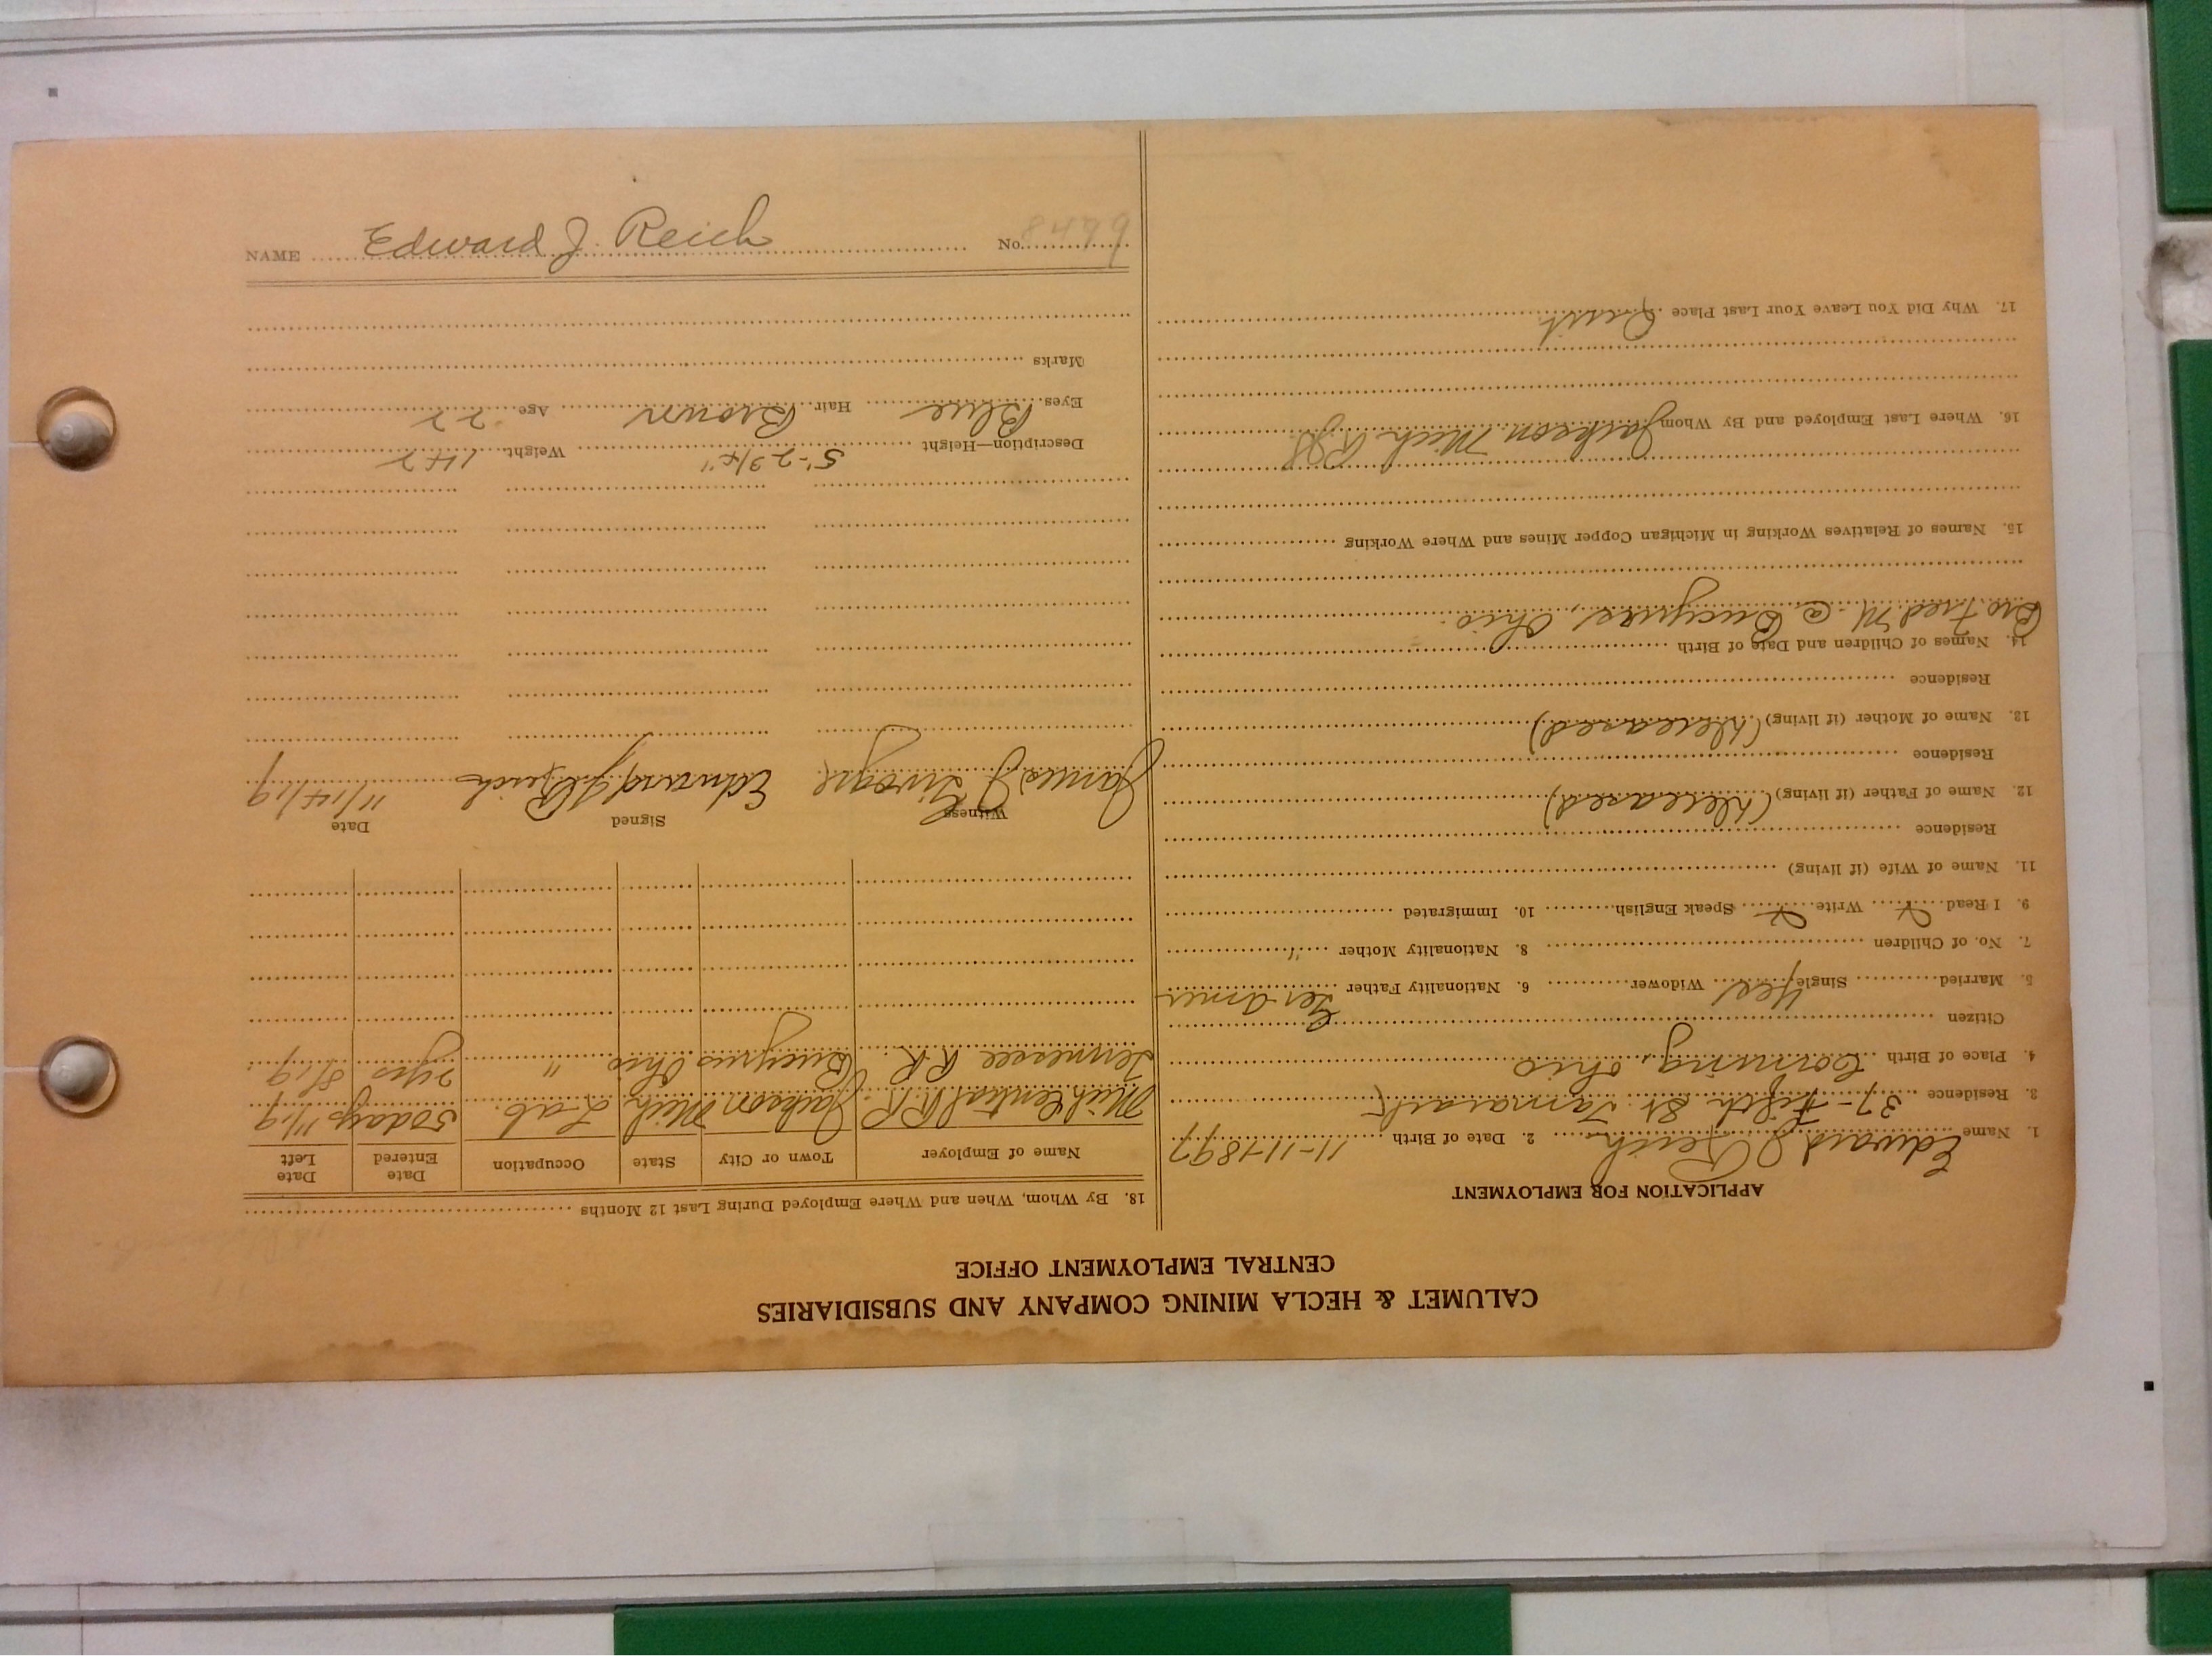 NAME Edward J. Reich No. 8499
CALUMET & HECLA MINING COMPANY AND SUBSIDIARIES
CENTRAL EMPLOYMENT OFFICE
APPLICATION FOR EMPLOYMENT
1. Name Edward J. Reich 2. Date of Birth 11-11-1897
3. Residence 37- Fifth St. Tamarack
4. Place of Birth Corning, Ohio
Citizen
5. Married Single Yes Widower 6. Nationality Father Ger Amer
7. No. of Children 8. Nationality Mother "
9. I Read Write Speak English 10. Immigrated
11. Name of Wife (if living)
Residence
12. Name of Father (if living) (Deceased)
Residence
13. Name of Mother (if living) (Deceased)
Residence
14. Names of Children and Date of Birth
Bro Fred M. @ Bucyrus, Ohio.
15. Names of Relatives Working in Michigan Copper Mines and Where Working
16. Where Last Employed and By Whom Jackson Mich R.R.
17. Why Did You Leave Your Last Place Quit
18. By Whom, When and Where Employed During Last 12 Months
Name of Employer Town or City State Occupation Date Entered Date Left
Mich Central RR Jackson Mich Lab. 50 days 11/19
Tennessee RR. Bucyrus Ohio " 2 yrs 8/19
Witness Signed Date
James J. Edward J. Reich 11/14/19
Description—Height 5'-2 3/4" Weight 142
Eyes Blue Hair Brown Age 22
Marks